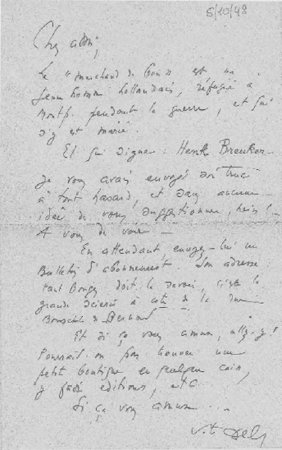 5/10/48
Cher ami,
Le "marchand de bois" est un
jeune homme hollandais, réfugié à
pendant la guerre, et qui
s'y est marié.
Et qui signe : Henk Breuker.
Je vous avais envoyé son truc
à tout hasard, et sans aucune
idée de vous suggestionner, hein!
A vous de voir —
En attendant envoyez-lui un
Bulletin d'abonnement. Son adresse
tant doit le savoir, c'est la
grande scierie à côté de la rue
Et si ça vous amuse, allez-y!
Pourrait-on pas trouver une
petite boutique en quelque coin,
y faire éditions, etc
Si ça vous amuse...